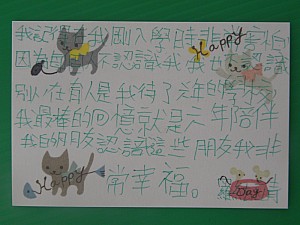 我 我剛入學時非
Happy
因為 不認識我我 認識
別人在育人是我待了六年的學校
我最棒的回憶就是六年陪伴
我的朋友認識這些朋友我非
Happy 常幸福。
Day